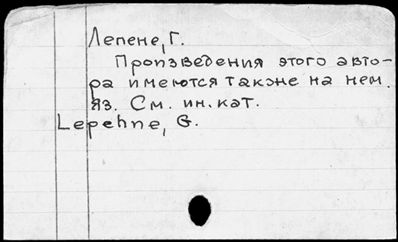 Лепене, Г.
Произведения этого авто-
ра имеются также на нем.
яз. См. ин. кат.
Lepehne, G.